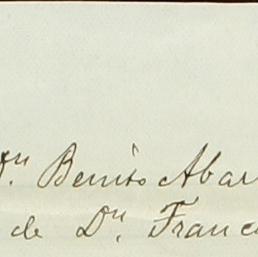 Dn. Benito Abar
de Dn. Franc